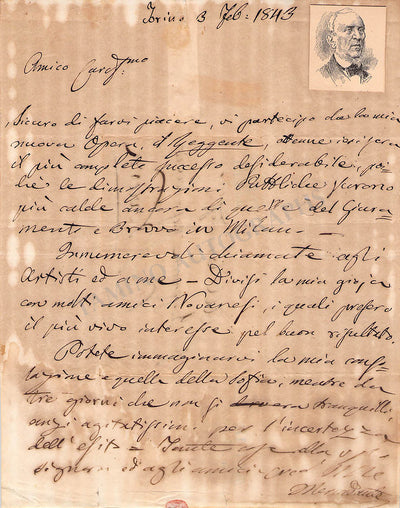 Torino 3 Feb: 1843
Amico Cariss.mo
Sicuro di farvi piacere, vi partecipo che la mia
nuova Opera, il Reggente, ottenne ieri sera
il più completo successo desiderabile, poi-
chè le dimostrazioni Pubbliche furono
più calde ancora di quelle del Giura-
mento e Bravo in Milano –
Innumerevoli chiamate agli
Artisti ed a me – Divisi la mia gioja
con molti amici Novaresi, i quali presero
il più vivo interesse pel buon risultato.
Potete immaginarvi la mia conso-
lazione e quella della Sofia, mentre da
tre giorni che non si era tranquilli
anzi agitatissimi per l'incertezza
dell'esito –
signora ed agli amici
Mercadante